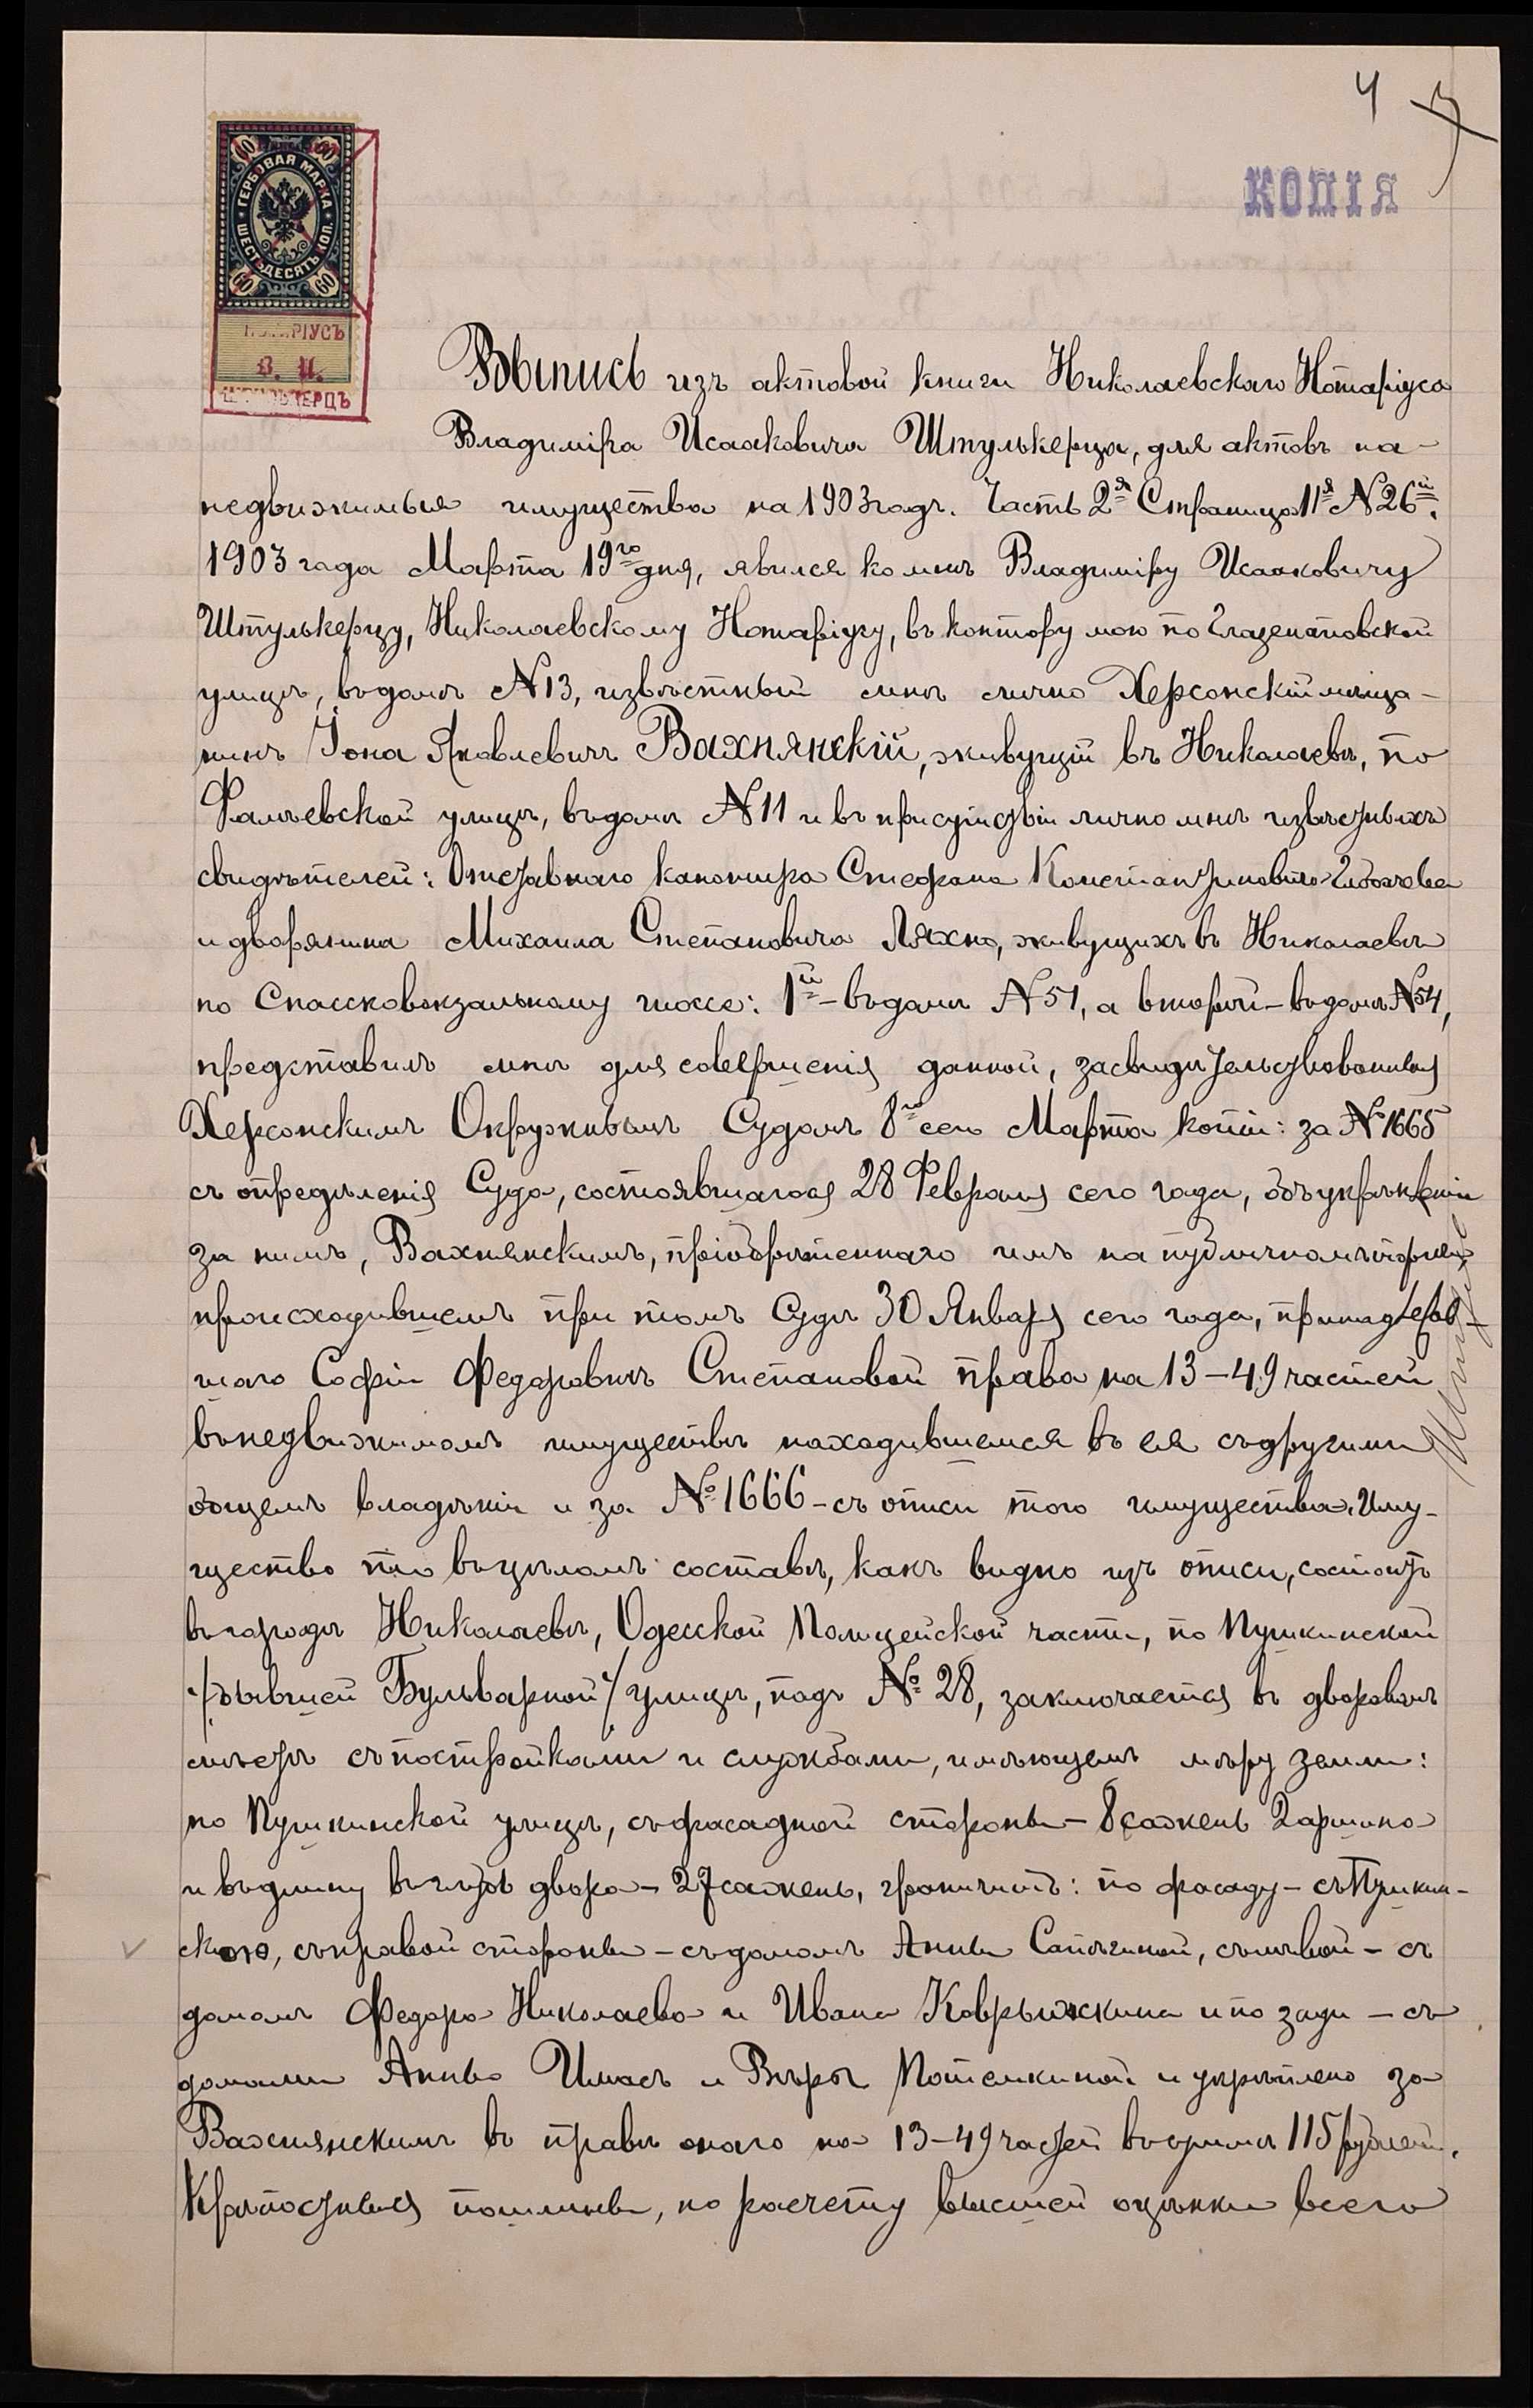 4
КОПІЯ
ГЕРБОВАЯ МАРКА
ШЕСТЬДЕСЯТЪ КОП.
60 60
60 60
НОТАРІУСЪ
В. И.
ШТУЛЬКЕРЦЪ
Выпись изъ актовой книги Николаевскаго Нотаріуса
Владиміра Исааковича Штулькерца, для актовъ на-
недвижимыя имущества на 1903 годъ. Часть 2я Страница 11я N 26й.
1903 года Марта 19го дня, явился ко мнѣ Владиміру Исааковичу
Штулькерцу, Николаевскому Нотаріусу, въ контору мою по Глазенаповской
улицѣ, въ домѣ N 13, извѣстный мнѣ лично Херсонскій мѣща-
нинъ Іона Яковлевичъ Вахнянскій, живущій въ Николаевѣ, по
Фалѣевской улицѣ, въ домѣ N 11 и въ присутствіи лично мнѣ извѣстныхъ
свидѣтелей: Отставного канонира Стефана Константиновича
и дворянина Михаила Степановича Ляхно, живущихъ въ Николаевѣ
по Спассковокзальному шоссе: 1й - въ домѣ N 51, а второй - въ домѣ N 54,
представилъ мнѣ для совершенія данной, засвидѣтельствованныя
Херсонскимъ Окружнымъ Судомъ 8го сего Марта копіи: за № 1665
съ опредѣленія Суда, состоявшагося 28 Февраля сего года, объ укрѣпленіи
за нимъ, Вахнянскимъ, пріобрѣтеннаго имъ на публичномъ торгѣ,
происходившемъ при томъ Судѣ 30 Января сего года, принадлежав-
шаго Софіи Федоровнѣ Степановой права на 13-49 частей
въ недвижимомъ имуществѣ находившемся въ ея съ другими
общемъ владѣніи и за № 1666 - съ описи того имущества. Иму-
щество это въ цѣломъ составѣ, какъ видно изъ описи, состоитъ
въ городѣ Николаевѣ, Одесской Полицейской части, по Пушкинской
/бывшей Бульварной/ улицѣ, подъ № 28, заключается въ дворовомъ
мѣстѣ съ постройками и службами, имѣющемъ мѣру земли:
по Пушкинской улицѣ, съ фасадной стороны - 8 сажень 2 аршина
и въ длину въ глубь двора - 27 сажень, граничитъ: по фасаду - съ Пушкин-
скою, съ правой стороны - съ домомъ Анны Сапѣгиной, съ лѣвой - съ
домомъ Федора Николаева и Ивана Коврыжкина и по зади - съ
домами Анны Имасъ и Вѣры Потемкиной и укрѣплено за
Вахнянскимъ въ правѣ онаго на 13-49 частей въ суммѣ 115 рублей.
Крѣпостныя пошлины, по расчету высшей оцѣнки всего